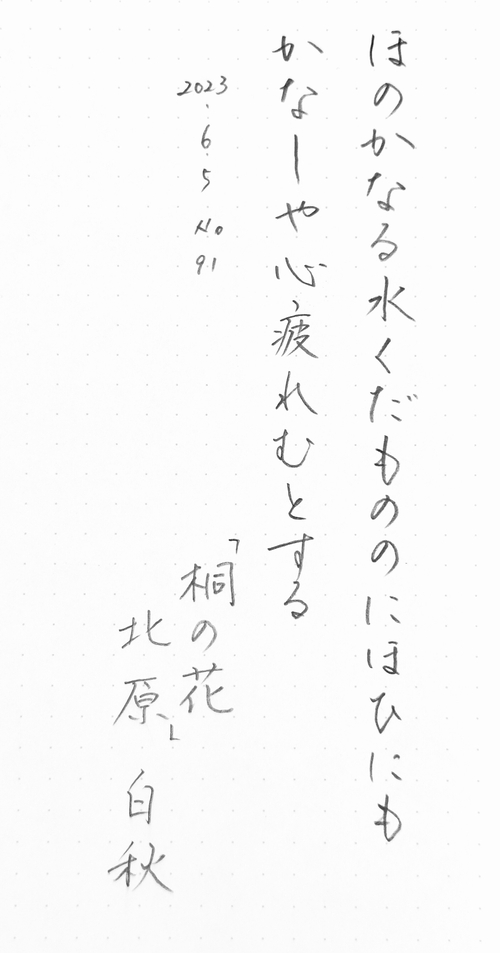 ほのかなる水くだもののにほひにも
かなしや心疲れむとする
2023.6.5 No 91
「桐の花」
北原白秋